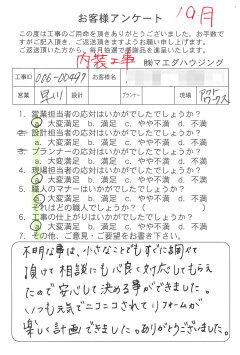 10月
お客様アンケート
この度は工事のご用命を頂きありがとうございました。お手数で
すがご記入頂き、ご返送頂きますようお願い申し上げます。
ご返送頂いた方から、毎月抽選で粗品を進呈いたします。
内装工事
㈱マエダハウジング
工事ID 006-00497 お客様名
営業 早川 設計 プランナー 現場 アクトワークス
1. 営業担当者の応対はいかがでしたでしょうか？
a. 大変満足 b. 満足 c. やや不満 d. 不満
2. 設計担当者の応対はいかがでしたでしょうか？
a. 大変満足 b. 満足 c. やや不満 d. 不満
3. プランナーの応対はいかがでしたでしょうか？
a. 大変満足 b. 満足 c. やや不満 d. 不満
4. 現場担当者の応対はいかがでしたでしょうか？
a. 大変満足 b. 満足 c. やや不満 d. 不満
5. 職人のマナーはいかがでしたでしょうか？
a. 大変満足 b. 満足 c. やや不満 d. 不満
それはどの職人でしょうか？（
6. 工事の仕上がりはいかがでしたでしょうか？
a. 大変満足 b. 満足 c. やや不満 d. 不満
7. その他、ご意見・ご要望をお書き下さい。
不明な事は、小さなことでもすぐに調べて
頂けて相談にも心良く対応してもらえ
たので安心して決める事ができました。
いつも元気でニコニコされてリフォームが
楽しく計画できました。ありがとうございました。